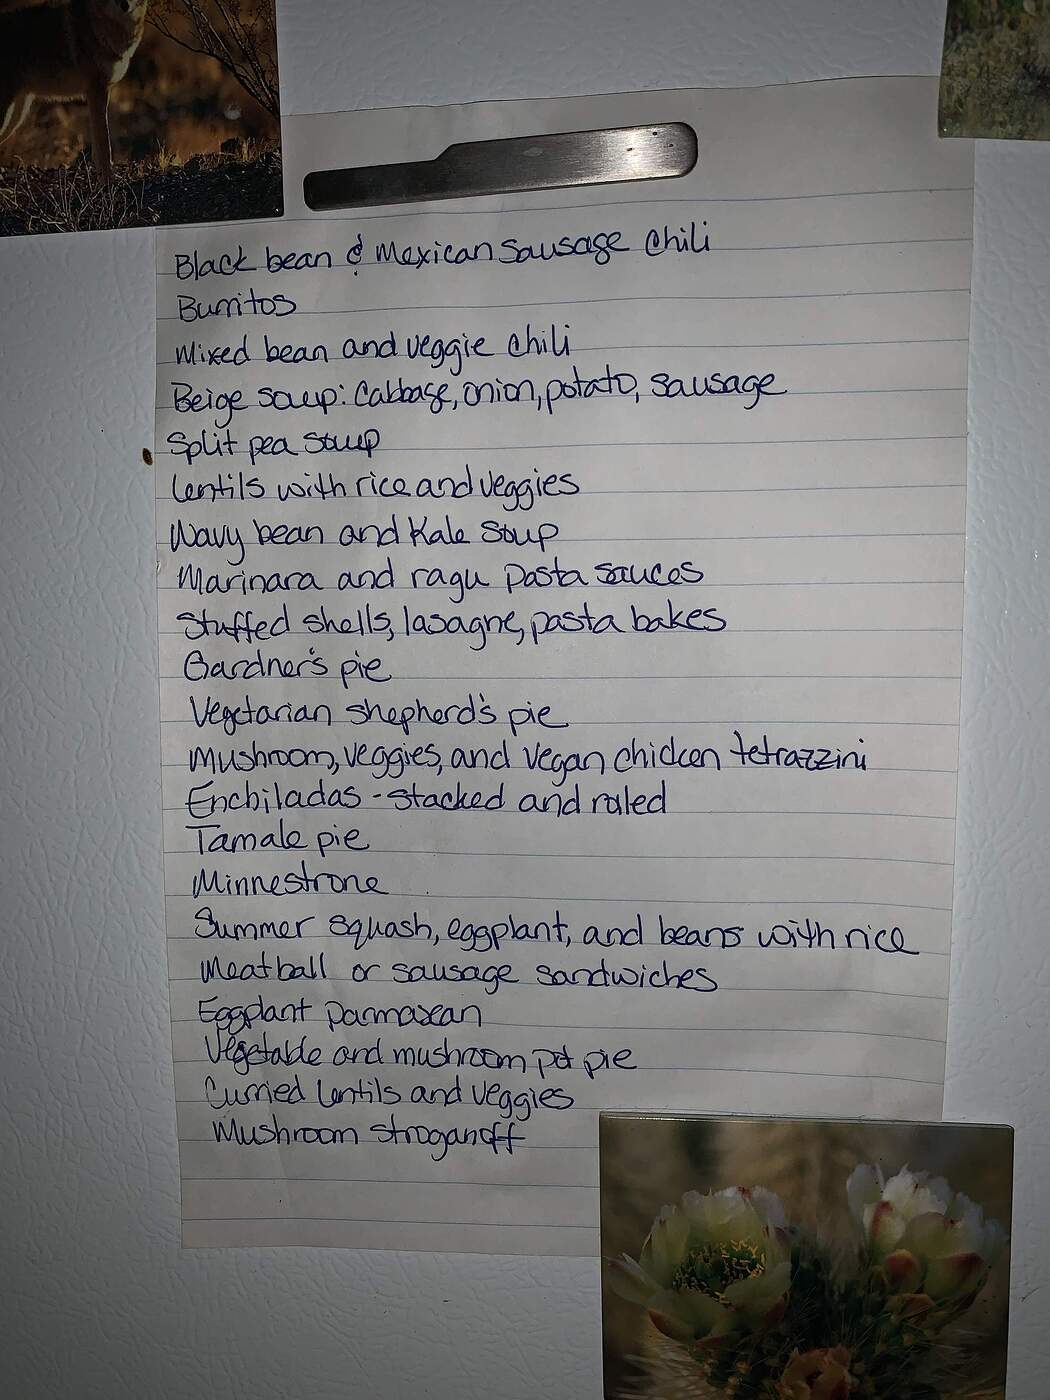 Black bean & Mexican sausage chili
Burritos
Mixed bean and veggie chili
Beige soup: Cabbage, onion, potato, sausage
Split pea soup
Lentils with rice and veggies
Navy bean and Kale soup
Marinara and ragu pasta sauces
Stuffed shells, lasagne, pasta bakes
Gardner's pie
Vegetarian shepherd's pie
Mushroom, veggies, and vegan chicken tetrazzini
Enchiladas - stacked and roled
Tamale pie
Minnestrone
Summer squash, eggplant, and beans with rice
Meatball or sausage sandwiches
Eggplant parmasean
Vegetable and mushroom pot pie
Curried lentils and veggies
Mushroom stroganoff